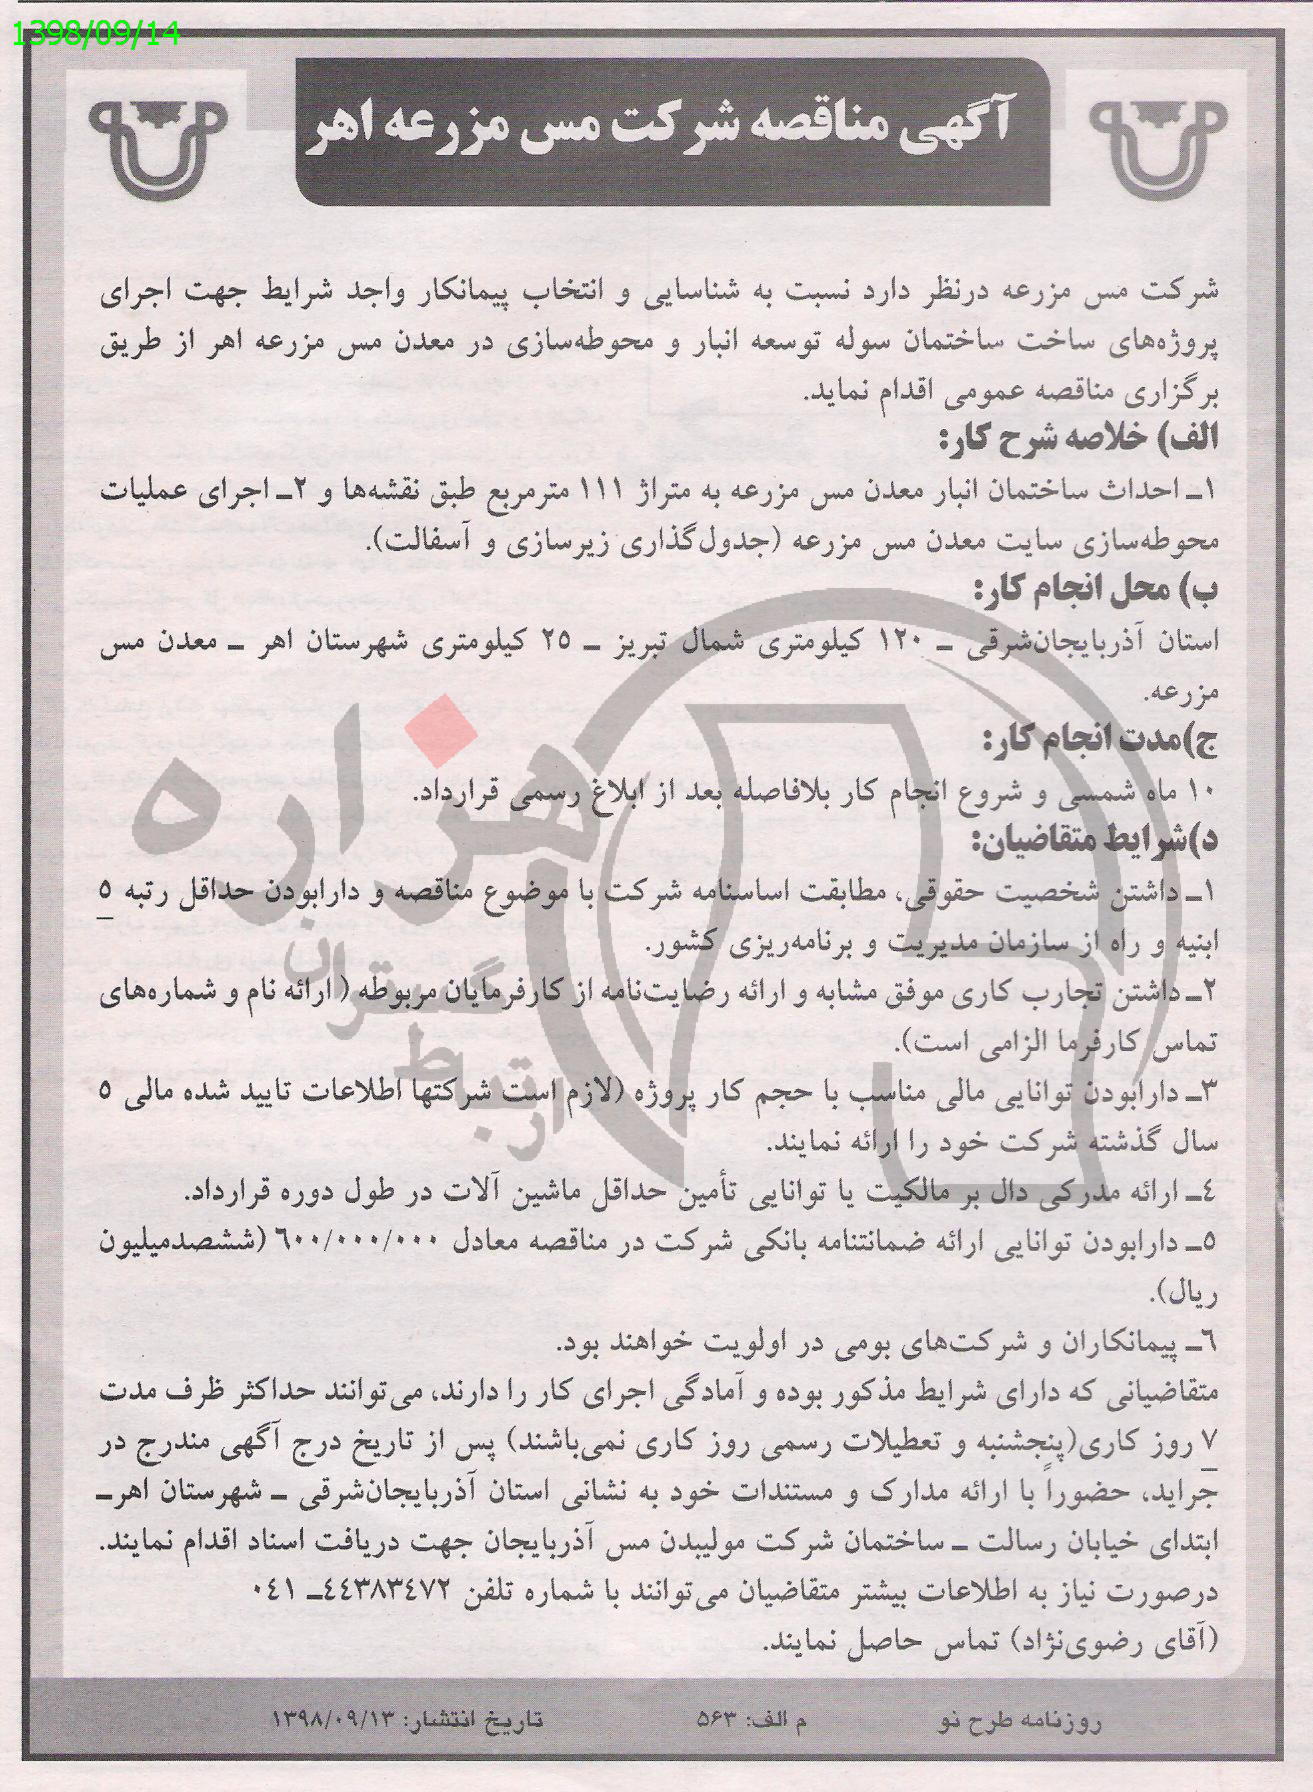 1398/09/14
آگهی مناقصه شرکت مس مزرعه اهر
شرکت مس مزرعه درنظر دارد نسبت به شناسایی و انتخاب پیمانکار واجد شرایط جهت اجرای
پروژه‌های ساخت ساختمان سوله توسعه انبار و محوطه‌سازی در معدن مس مزرعه اهر از طریق
برگزاری مناقصه عمومی اقدام نماید.
الف) خلاصه شرح کار:
۱ـ احداث ساختمان انبار معدن مس مزرعه به متراژ ۱۱۱ مترمربع طبق نقشه‌ها و ۲ـ اجرای عملیات
محوطه‌سازی سایت معدن مس مزرعه (جدول‌گذاری زیرسازی و آسفالت).
ب) محل انجام کار:
استان آذربایجان‌شرقی ـ ۱۲۰ کیلومتری شمال تبریز ـ ۲۵ کیلومتری شهرستان اهر ـ معدن مس
مزرعه.
ج)مدت انجام کار:
۱۰ ماه شمسی و شروع انجام کار بلافاصله بعد از ابلاغ رسمی قرارداد.
د)شرایط متقاضیان:
۱ـ داشتن شخصیت حقوقی، مطابقت اساسنامه شرکت با موضوع مناقصه و دارابودن حداقل رتبه ۵
ابنیه و راه از سازمان مدیریت و برنامه‌ریزی کشور.
۲ـ داشتن تجارب کاری موفق مشابه و ارائه رضایت‌نامه از کارفرمایان مربوطه ( ارائه نام و شماره‌های
تماس کارفرما الزامی است).
۳ـ دارابودن توانایی مالی مناسب با حجم کار پروژه (لازم است شرکتها اطلاعات تایید شده مالی ۵
سال گذشته شرکت خود را ارائه نمایند.
۴ـ ارائه مدرکی دال بر مالکیت یا توانایی تأمین حداقل ماشین آلات در طول دوره قرارداد.
۵ـ دارابودن توانایی ارائه ضمانتنامه بانکی شرکت در مناقصه معادل ۶۰۰/۰۰۰/۰۰۰ (ششصدمیلیون
ریال).
۶ـ پیمانکاران و شرکت‌های بومی در اولویت خواهند بود.
متقاضیانی که دارای شرایط مذکور بوده و آمادگی اجرای کار را دارند، می‌توانند حداکثر ظرف مدت
۷ روز کاری(پنجشنبه و تعطیلات رسمی روز کاری نمی‌باشند) پس از تاریخ درج آگهی مندرج در
جراید، حضوراً با ارائه مدارک و مستندات خود به نشانی استان آذربایجان‌شرقی ـ شهرستان اهرـ
ابتدای خیابان رسالت ـ ساختمان شرکت مولیبدن مس آذربایجان جهت دریافت اسناد اقدام نمایند.
درصورت نیاز به اطلاعات بیشتر متقاضیان می‌توانند با شماره تلفن ۴۴۳۸۳۴۷۲ـ ۰۴۱
(آقای رضوی‌نژاد) تماس حاصل نمایند.
روزنامه طرح نو م الف: ۵۶۳ تاریخ انتشار: ۱۳۹۸/۰۹/۱۳
هزاره
ارتباط
گستران